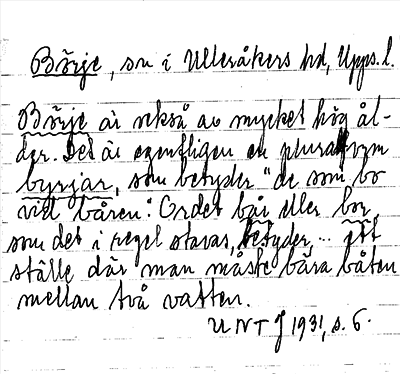 Börje, sn i Ulleråkers hd, Upps. l.
Börje är också av mycket hög ål-
der. Det är egentligen en pluralform
byrjar, som betyder "de som bo
vid båren". Ordet bår eller bor,
som det i regel stavas, betyder... ett
ställe där man måste bära båten
mellan två vatten.
UNT J 1931, s. 6.